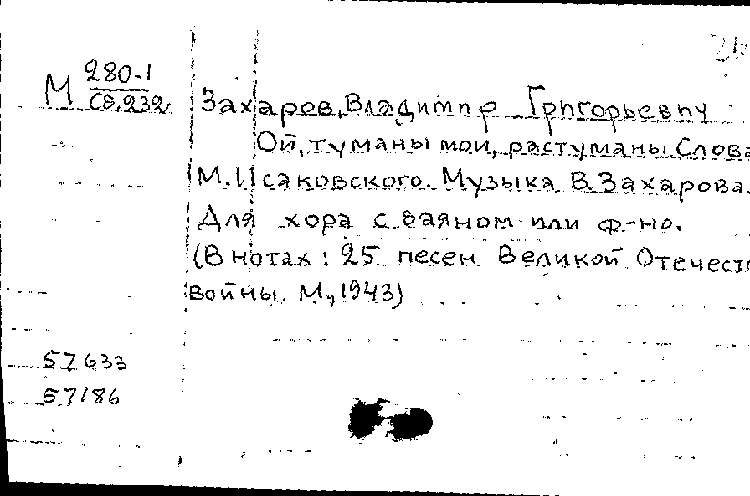 М 280-1
Сб.232
Захаров, Владимир Григорьевич
Ой, туманы мои, растуманы Слова
М. Исаковского. Музыка В. Захарова.
Для хора с баяном или ф-но.
(В нотах: 25 песен Великой Отечеств
войны. М., 1943)
57633
57186